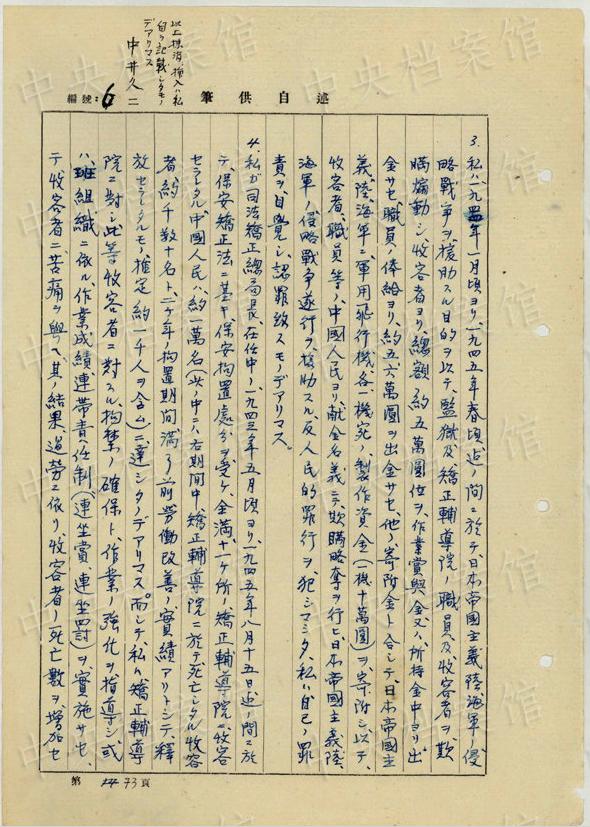 述自供筆
編號：6
以上抹消、挿入ハ私
自ラ記載シタモノ
デアリマス
中井久二
3. 私ハ一九四四年一月頃ヨリ一九四五年春頃迄ノ間ニ於テ、日本帝國主義陸海軍ノ侵
略戰爭ヲ援助スル目的ヲ以テ、監獄及矯正輔導院ノ職員及收容者ヲ欺
瞞煽動シ收容者ヨリ、總額約五萬圓位ヲ、作業賞與金又ハ所持金中ヨリ出
金サセ、職員ノ俸給ヨリ、約五六萬圓ヲ出金サセ、他ノ寄附金ト合シテ、日本帝國主
義陸、海軍ニ軍用飛行機各一機宛ノ製作資金(一機十萬圓)ヲ寄附シ以テ、
收容者、職員等ノ中國人民ヨリ、献金名義ニテ欺瞞略奪ヲ行ヒ、日本帝國主義陸、
海軍ノ侵略戰爭遂行ヲ援助スル、反人民的罪行ヲ犯シマシタ、私ハ自己ノ罪
責ヲ自覺シ、認罪致スモノデアリマス。
4. 私ガ司法矯正總局長、在任中ノ一九四三年五月頃ヨリ一九四五年八月十五日迄ノ間ニ於
テ、保安矯正法ニ基キ、保安拘置處分ヲ受ケ、全滿十一ケ所ノ矯正輔導院ニ收容
セラレタル中國人民ハ、約一萬名(此ノ中ニハ右期間中、矯正輔導院ニ於テ死亡シタル收容
者約千数十名ト、二ケ年ノ拘置期間滿了前勞働改善ノ實績アリトシテ、釋
放セラレタルモノ推定約一千人ヲ含ム)ニ達シタノデアリマス。而シテ、私ハ矯正輔導
院ニ対シ、此等收容者ニ對スル、拘禁ノ確保ト、作業ノ強化ヲ指導シ或
ハ、班組織ニ依ル、作業成績連帯責任制(連坐賞、連坐罰)ヲ、實施サセ、
テ收容者ニ苦痛ヲ與ヘ、其ノ結果、過勞ニ依リ、收容者ノ死亡數ヲ増加セ
第 73頁
中央档案馆